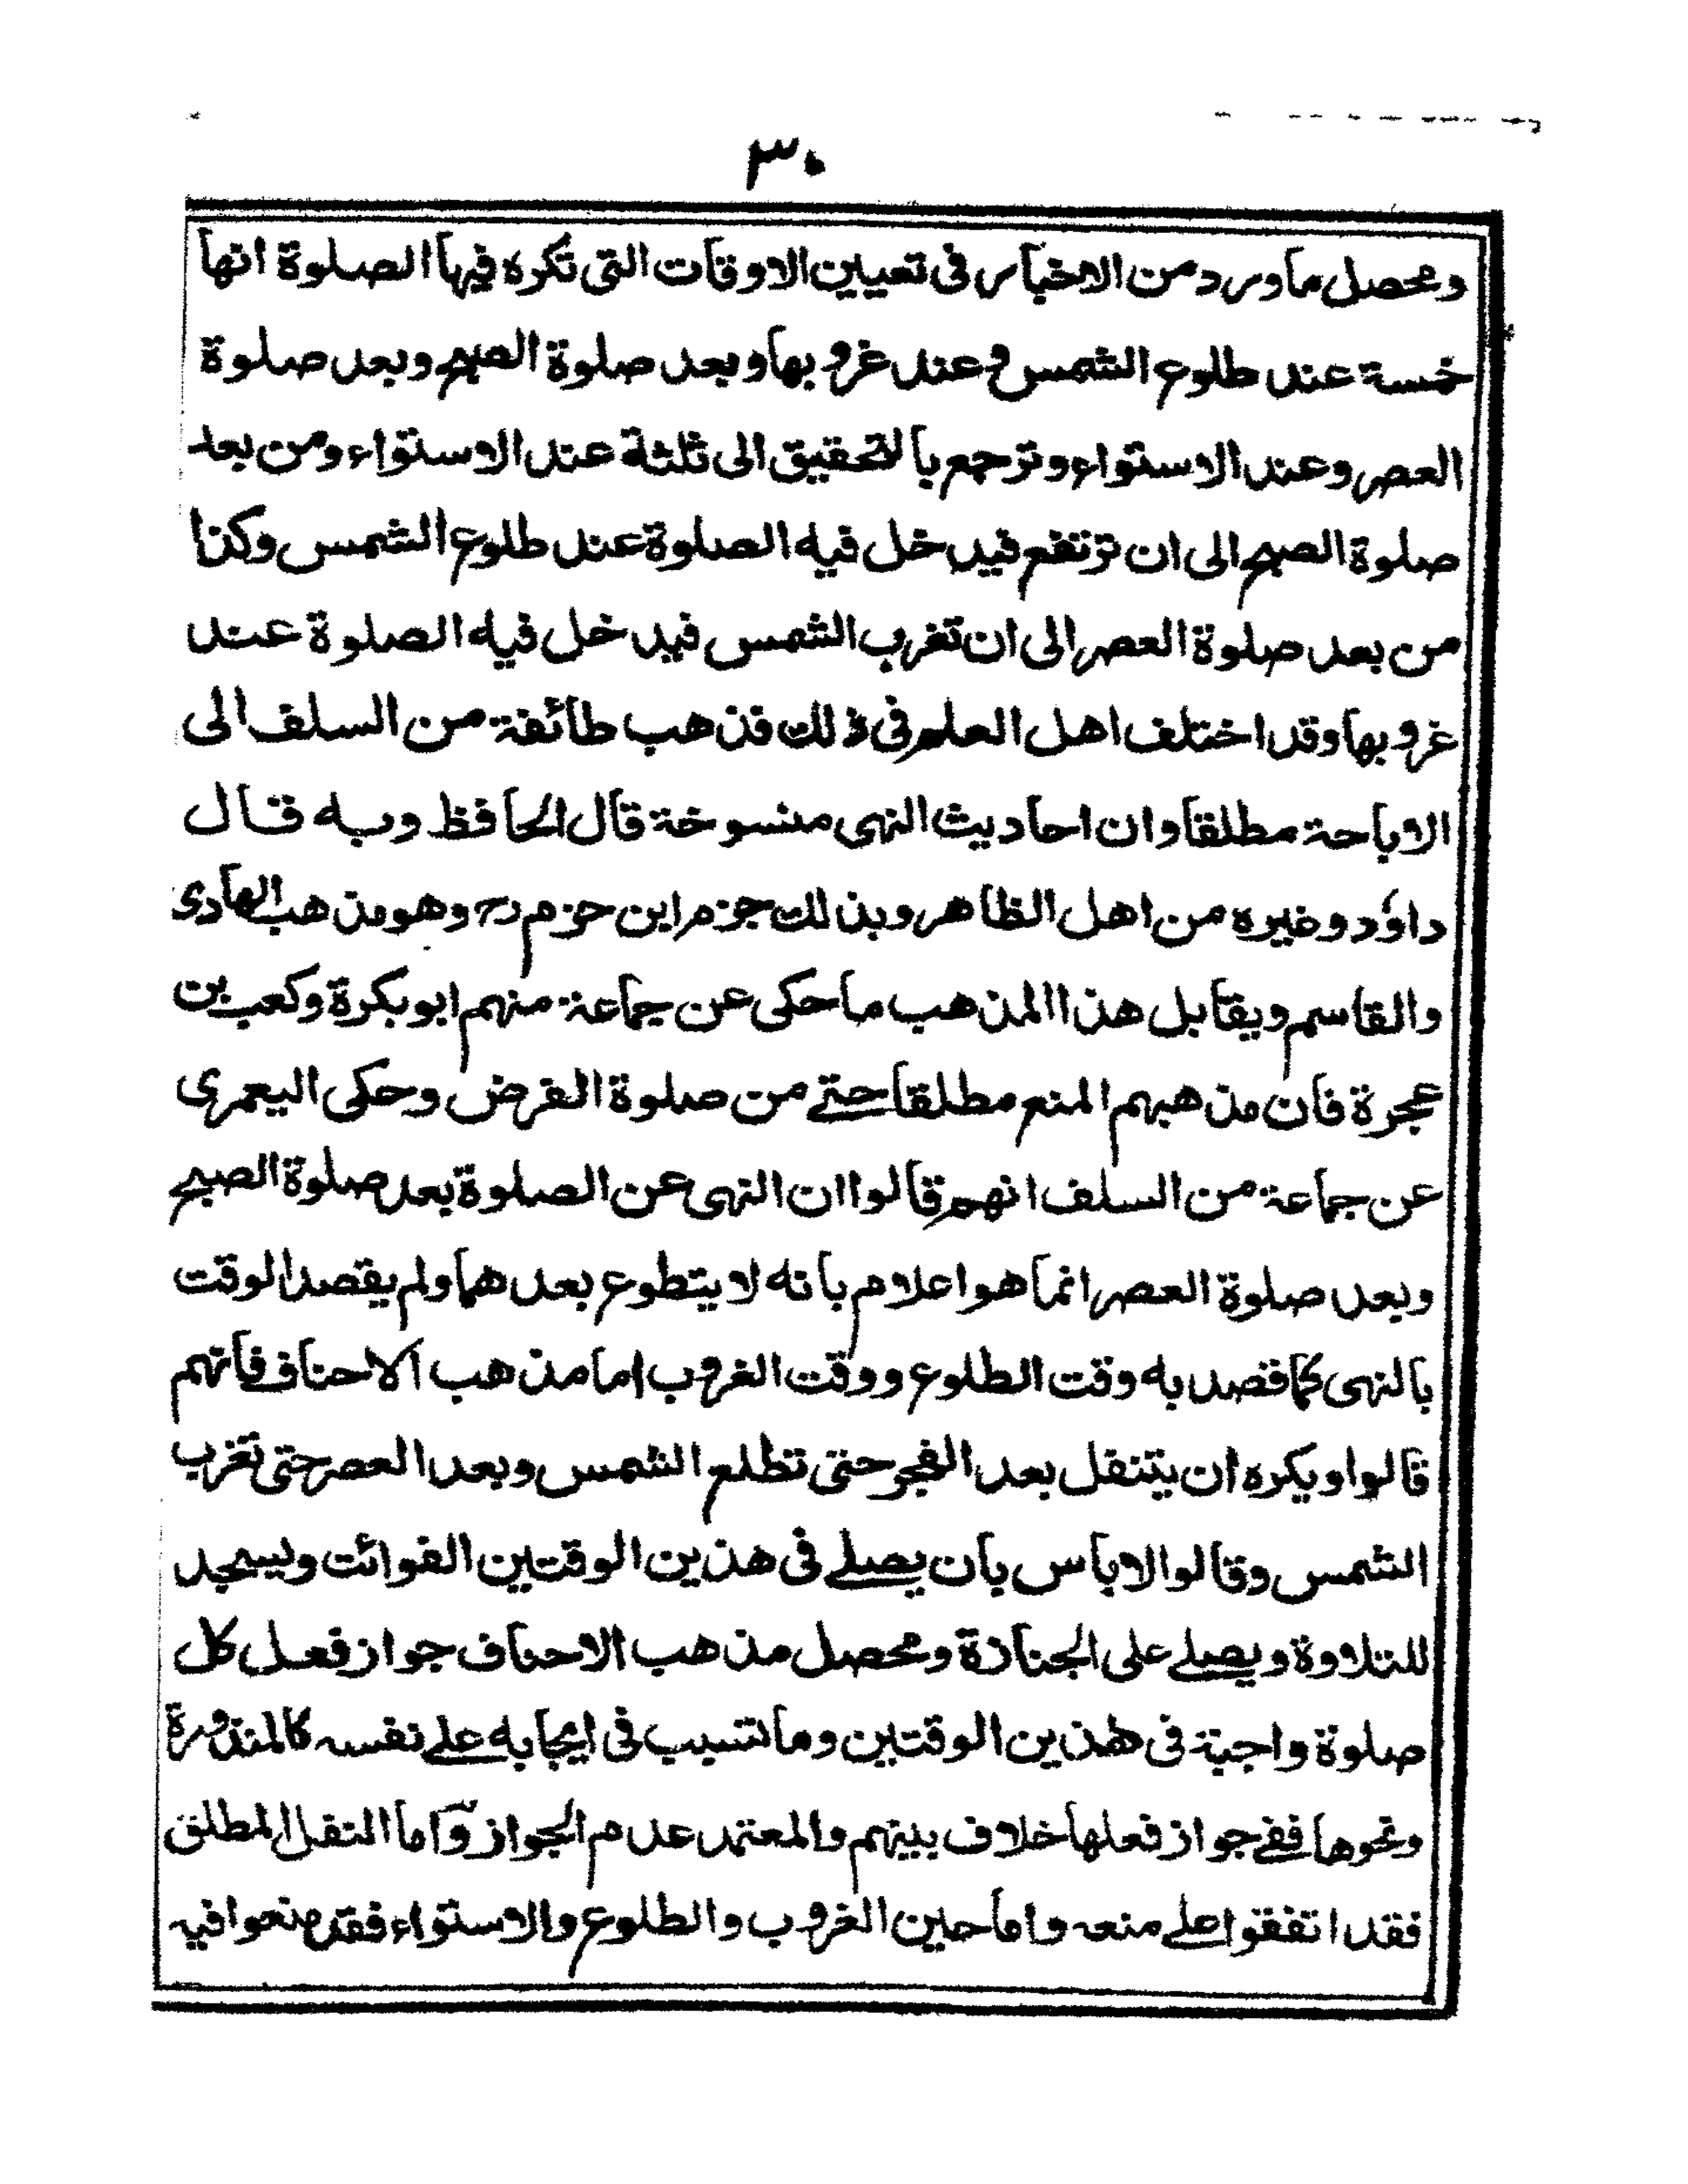 ٣٠
ومحصل ما ورد من الاخبار فى تعيين الاوقات التى تكره فيها الصلوة انها
خمسة عند طلوع الشمس وعند غروبها وبعد صلوة الصبح وبعد صلوة
العصر وعند الاستواء وترجع بالتحقيق الى ثلثة عند الاستواء ومن بعد
صلوة الصبح الى ان ترتفع فيدخل فيه الصلوة عند طلوع الشمس وكذا
من بعد صلوة العصر الى ان تغرب الشمس فيدخل فيه الصلوة عند
غروبها وقد اختلف اهل العلم فى ذلك فذهب طائفة من السلف الى
الاباحة مطلقا وان احاديث النهى منسوخة قال الحافظ وبه قال
داؤد وغيره من اهل الظاهر وبذلك جزم ابن حزم رح وهو مذهب الهادى
والقاسم ويقابل هذا المذهب ما حكى عن جماعة منهم ابو بكرة وكعب بن
عجرة فان مذهبهم المنع مطلقا حتے من صلوة الفرض وحكى اليعمرى
عن جماعة من السلف انهم قالوا ان النهى عن الصلوة بعد صلوة الصبح
وبعد صلوة العصر انما هو اعلام بانه لا يتطوع بعدهما ولم يقصد الوقت
بالنهى كما قصد به وقت الطلوع ووقت الغروب اما مذهب الاحناف فانهم
قالوا ويكره ان يتنفل بعد الفجر حتى تطلع الشمس وبعد العصر حتى تغرب
الشمس وقالوا لا باس بان يصلے فى هذين الوقتين الفوائت ويسجد
للتلاوة ويصلے على الجنازة ومحصل مذهب الاحناف جواز فعل كل
صلوة واجبة فى هذين الوقتين وما تسبب فى ايجابه علے نفسه كالمنذورة
ونحوها ففے جواز فعلها خلاف بينهم والمعتمد عدم الجواز واما النفل المطلق
فقد اتفقوا علے منعه واما حين الغروب والطلوع والاستواء فقد منعوا فيه